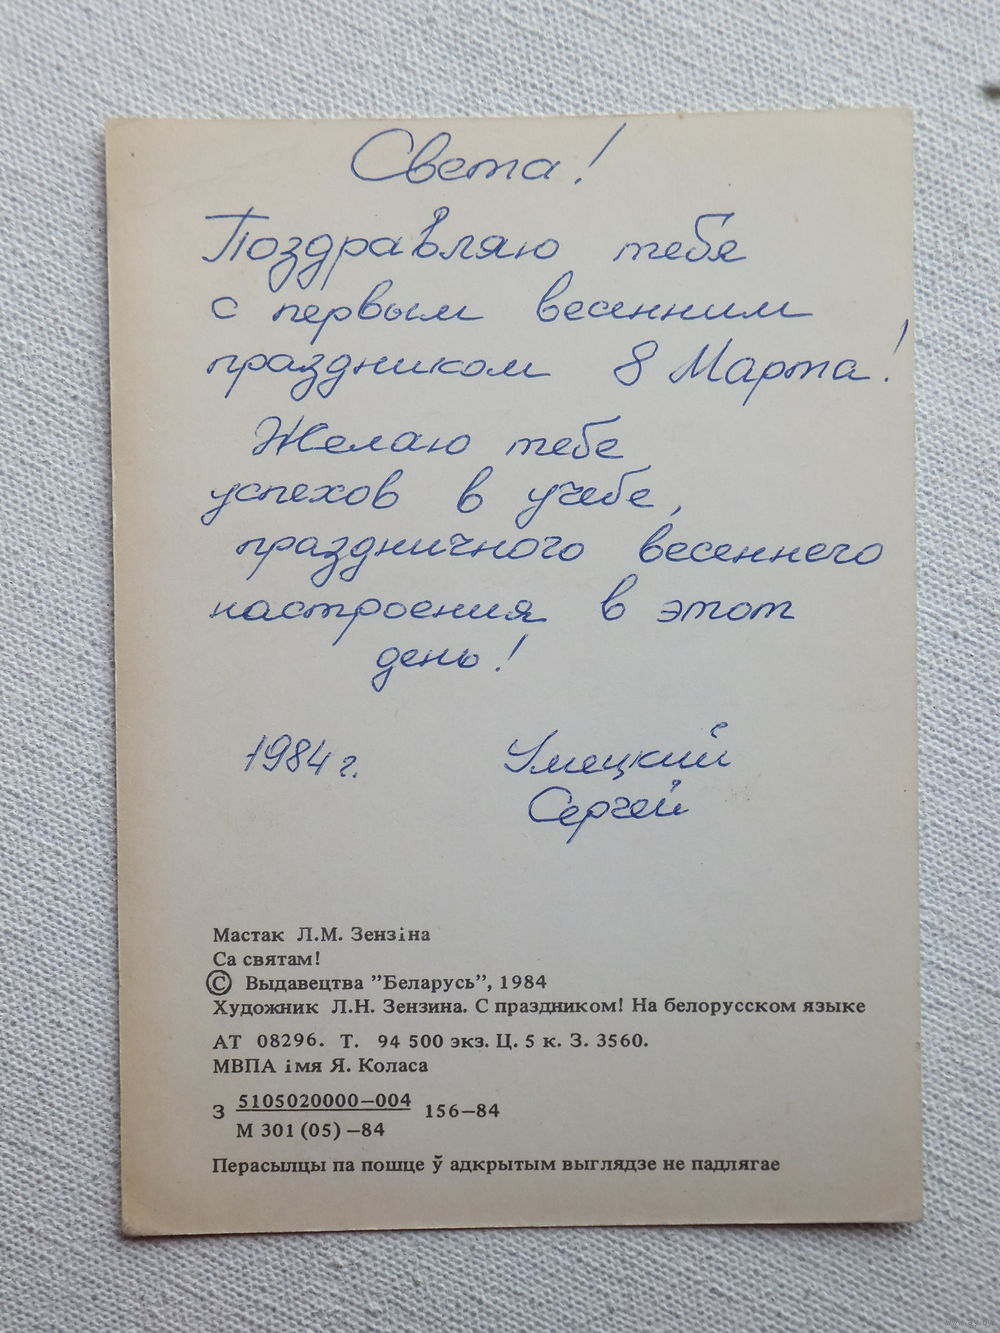 Света!
Поздравляю тебя
с первым весенним
праздником 8 Марта!
Желаю тебе
успехов в учебе,
праздничного весеннего
настроения в этот
день!
1984 г. Умецкий
Сергей
Мастак Л.М. Зензіна
Са святам!
© Выдавецтва "Беларусь", 1984
Художник Л.Н. Зензина. С праздником! На белорусском языке
АТ 08296. Т. 94 500 экз. Ц. 5 к. З. 3560.
МВПА імя Я. Коласа
З 5105020000—004 156—84
М 301 (05) —84
Перасылцы па пошце ў адкрытым выглядзе не падлягае